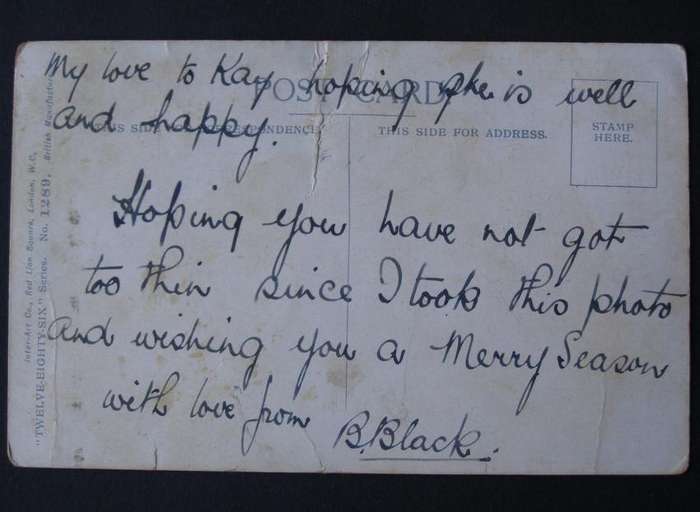 My love to Kay hoping she is well
POST CARD
and happy.
THIS SIDE FOR CORRESPONDENCE.
THIS SIDE FOR ADDRESS.
STAMP
HERE.
Hoping you have not got
too thin since I took this photo
and wishing you a Merry Season
with love from
B. Black.
Inter-Art Co., Red Lion Square, London, W.C.
"TWELVE-EIGHTY-SIX" Series. No. 1289. British Manufacture